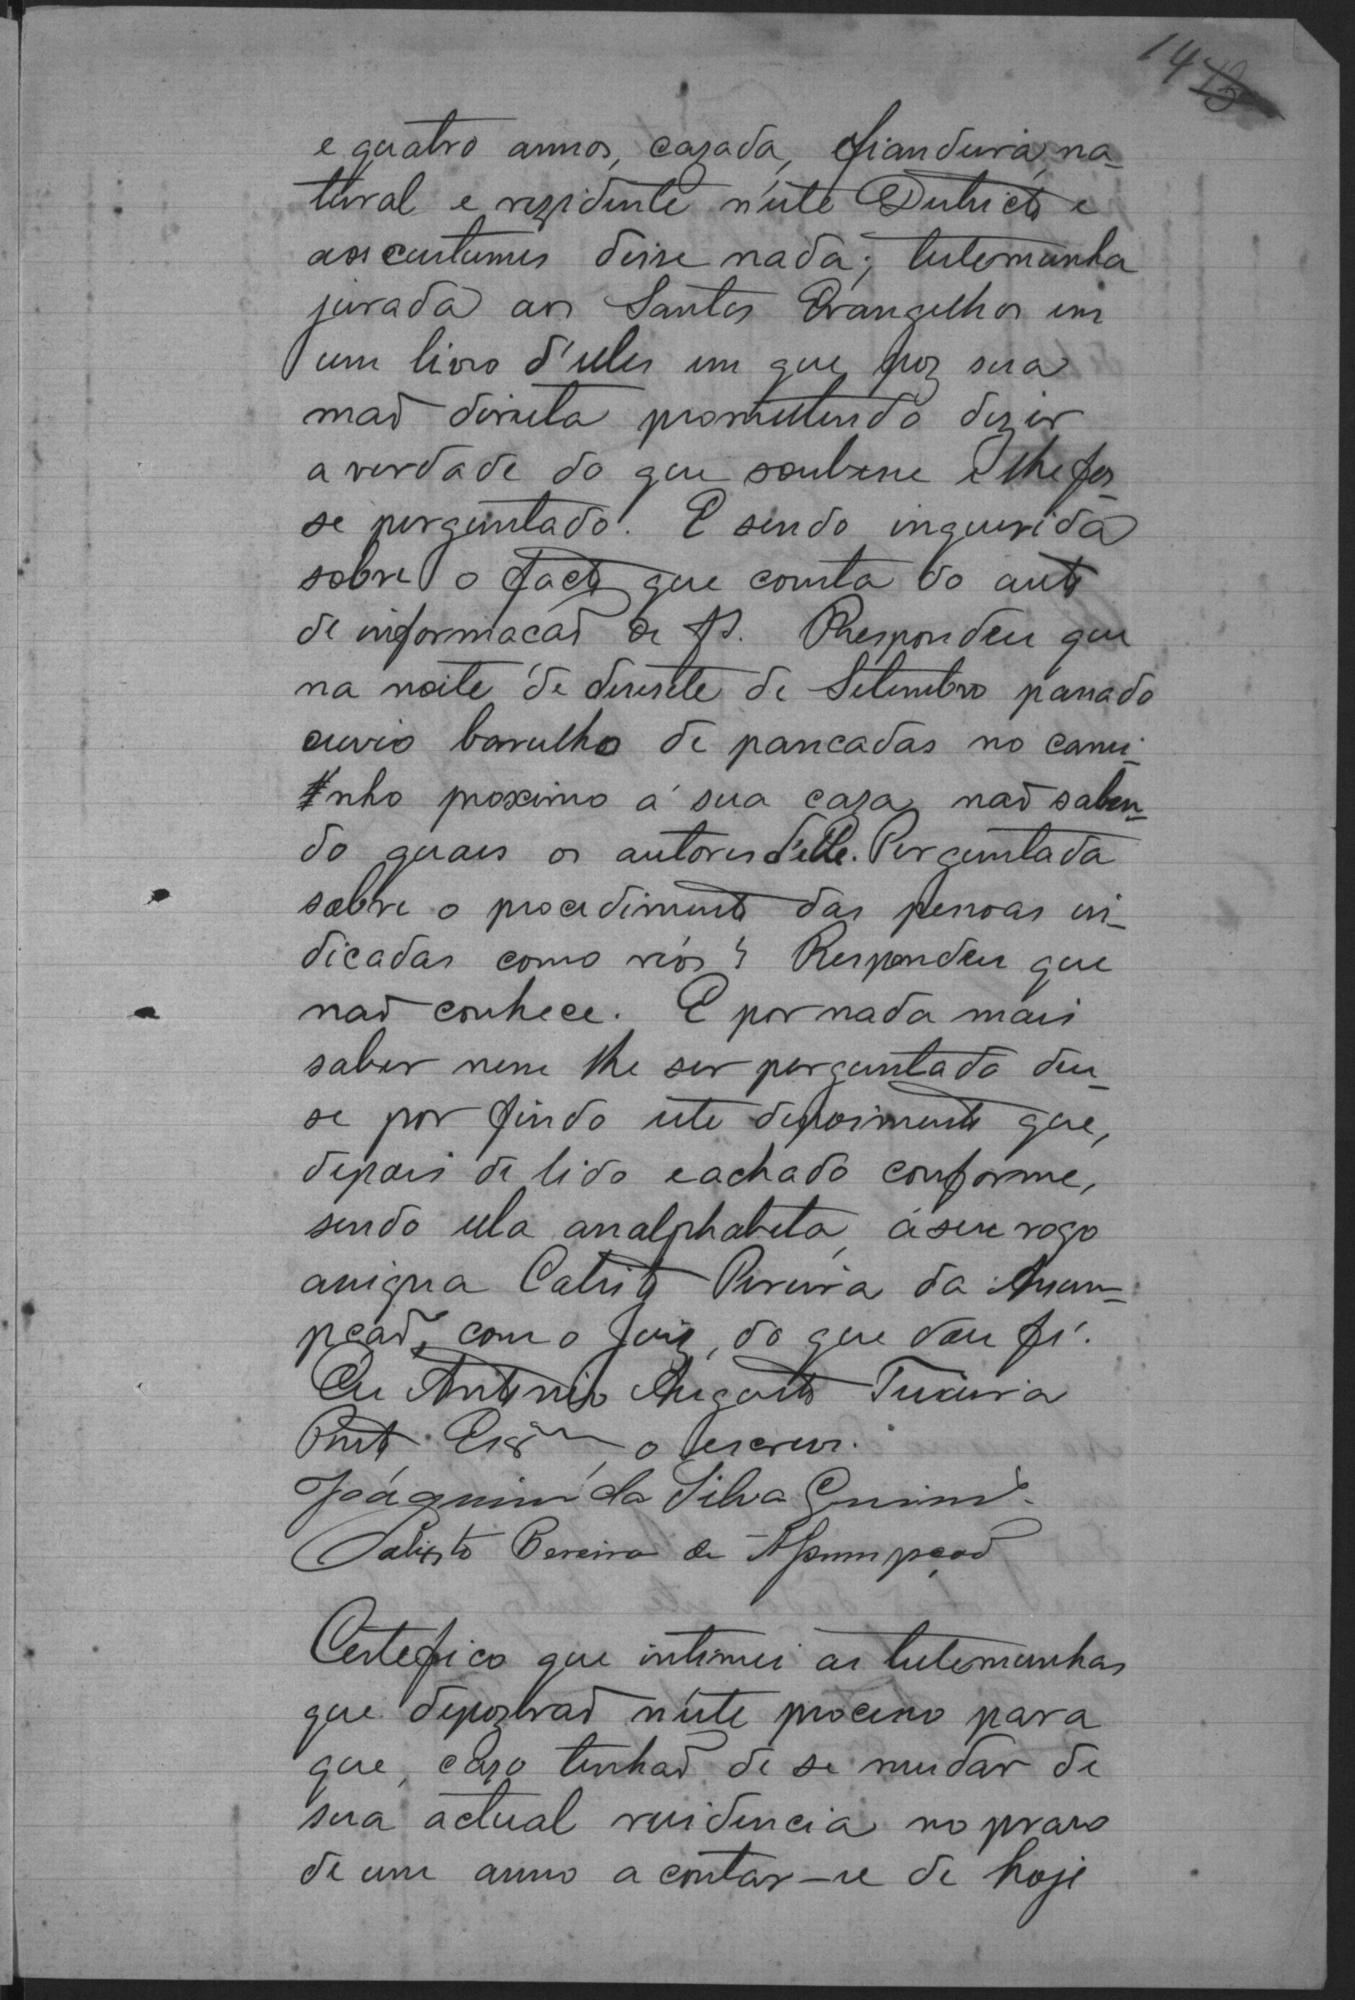 14 13
e quatro annos, cazada, fiandeira, na-
tural e rezidente n'este Districto e
aos custumes disse nada; testemunha
jurada aos Santos Evangelhos em
um livro d'elles em que poz sua
mao direita promettendo dizer
a verdade do que soubesse e lhe fos-
se perguntado. E sendo inquerida
sobre o facto que consta do auto
de informacao de fs. Respondeu que
na noite de desesete de Setembro passado
ouvio barulho de pancadas no cami-
nho proximo á sua caza, nao saben-
do quaes os autores d'elle. Perguntada
sobre o procedimento das pessoas in-
dicadas como réos? Respondeu que
nao conhece. E por nada mais
saber nem lhe ser perguntado deu-
se por findo este depoimento que,
depois de lido e achado conforme,
sendo ella analphabeta, a seu rogo
assigna Calisto Pereira da Assum-
pçaõ, com o Juiz, do que dou fé.
Eu Antonio Augusto Teixeira
Pinto Esc.am, o escrevi.
Joáquim da Silva Guim.es
Calixto Pereira de Assumpçaõ
Certefico que intimei as testemunhas
que depozerao n'este processo para
que, cazo tenhao de se mudar de
sua actual residencia no praso
de um anno a contar-se de hoje